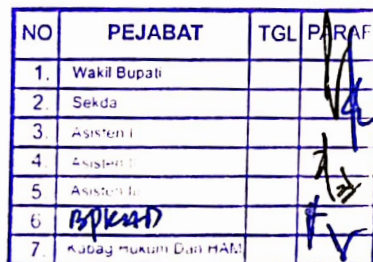 NO PEJABAT TGL PARAF
1. Wakil Bupati
2. Sekda
3. Asisten I
4. Asisten
5 Asisten
6 BPKAD
7. Kabag Hukum Dan HAM